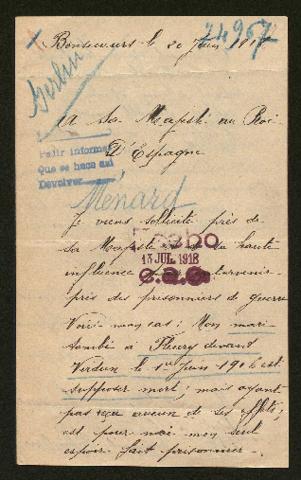 24967
Bonsecours le 20 Juin 1918
Berlin
A Sa Majesté au Roi
D'Espagne
Pedir informes
Que se hace aqui
Devolver
Menard
Je viens sollicité près de
sa Majesté et sa haute
13 JUL. 1918
influence intervenir
près des prisonniers de guerre
Voici mon cas : Mon mari
tombé à Fleury devant
Verdun le 1er Juin 1916 est
supposer mort ; mais ayant
pas reçu aucun de ses effets,
est pour moi mon seul
espoir fait prisonnier.